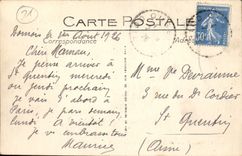 21
CARTE POSTALE
Correspondance
1er Août 1926
Chère Maman,
Je pense arriver à
St Quentin mercredi
ou jeudi prochain
Je vais d'abord à
Paris, je pars demain
lundi à
je v embrasse tous
Maurice
Mme Vve Devranne
3 rue du Dr Cordier
St Quentin
(Aisne)